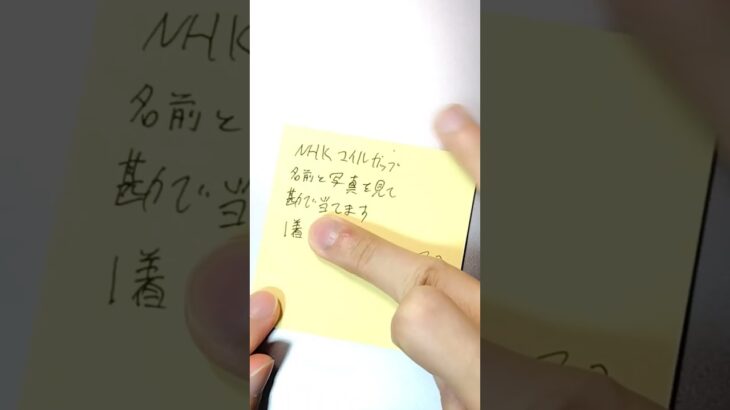 NHK マイルカップ
名前と写真を見て
勘で当てます
1着